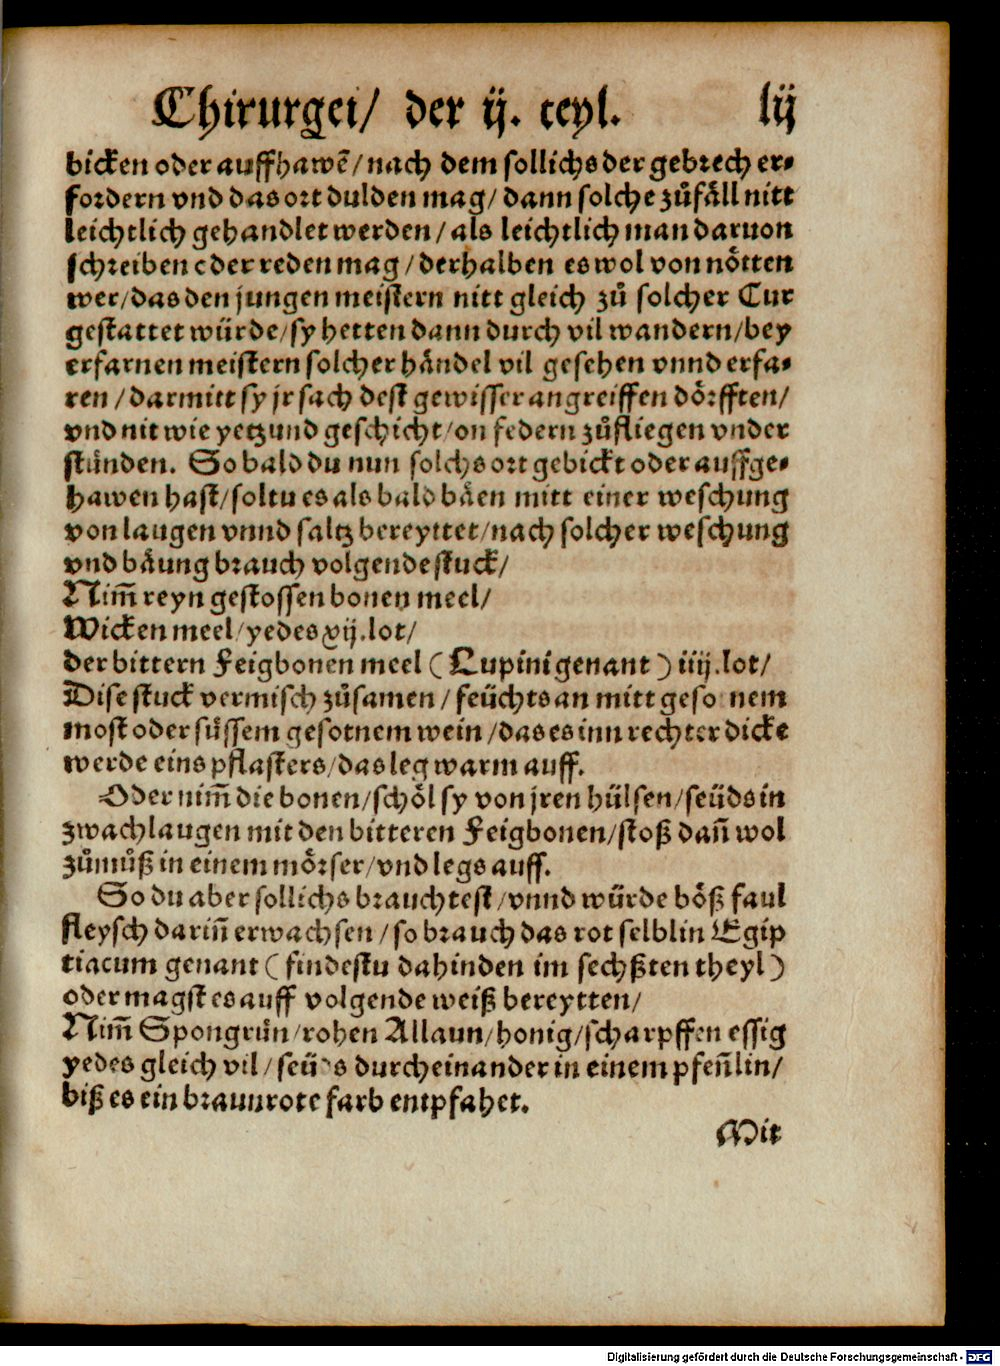 Chirurgei/ der ij. teyl. lij
bicken oder auffhawē/nach dem sollichs der gebrech er-
fordern vnd das ort dulden mag/ dann solche zůfåll nitt
leichtlich gehandlet werden/als leichtlich man daruon
schreiben oder reden mag/derhalben es wol von nötten
wer/das den jungen meistern nitt gleich zů solcher Cur
gestattet würde/sy hetten dann durch vil wandern/bey
erfarnen meistern solcher håndel vil gesehen vnnd erfa-
ren/darmitt sy jr sach dest gewisser angreiffen dörfften/
vnd nit wie yetzund geschicht/on federn zůfliegen vnder
stünden. So bald du nun solchs ort gebickt oder auffge-
hawen hast/soltu es als bald båen mitt einer weschung
von laugen vnnd saltz bereyttet/nach solcher weschung
vnd båung brauch volgende stuck/
Nim̄ reyn gestossen bonen meel/
Wicken meel/yedes xij.lot/
der bittern Feigbonen meel (Lupini genant) iiij.lot/
Dise stuck vermisch zůsamen/feüchts an mitt geso nem
most oder süssem gesotnem wein/das es inn rechter dicke
werde eins pflasters/das leg warm auff.
Oder nim̄ die bonen/schöl sy von jren hülsen/seüds in
zwachlaugen mit den bitteren Feigbonen/stoß dañ wol
zůmůß in einem mörser/vnd legs auff.
So du aber sollichs brauchtest/vnnd würde böß faul
fleysch dariñ erwachsen/so brauch das rot selblin Egip
tiacum genant (findestu dahinden im sechßten theyl)
oder magst es auff volgende weiß bereytten/
Nim̄ Spongrün/rohen Allaun/honig/scharpffen essig
yedes gleich vil/seüds durcheinander in einem pfeñlin/
biß es ein braunrote farb entpfahet.
Mit
Digitalisierung gefördert durch die Deutsche Forschungsgemeinschaft - DFG